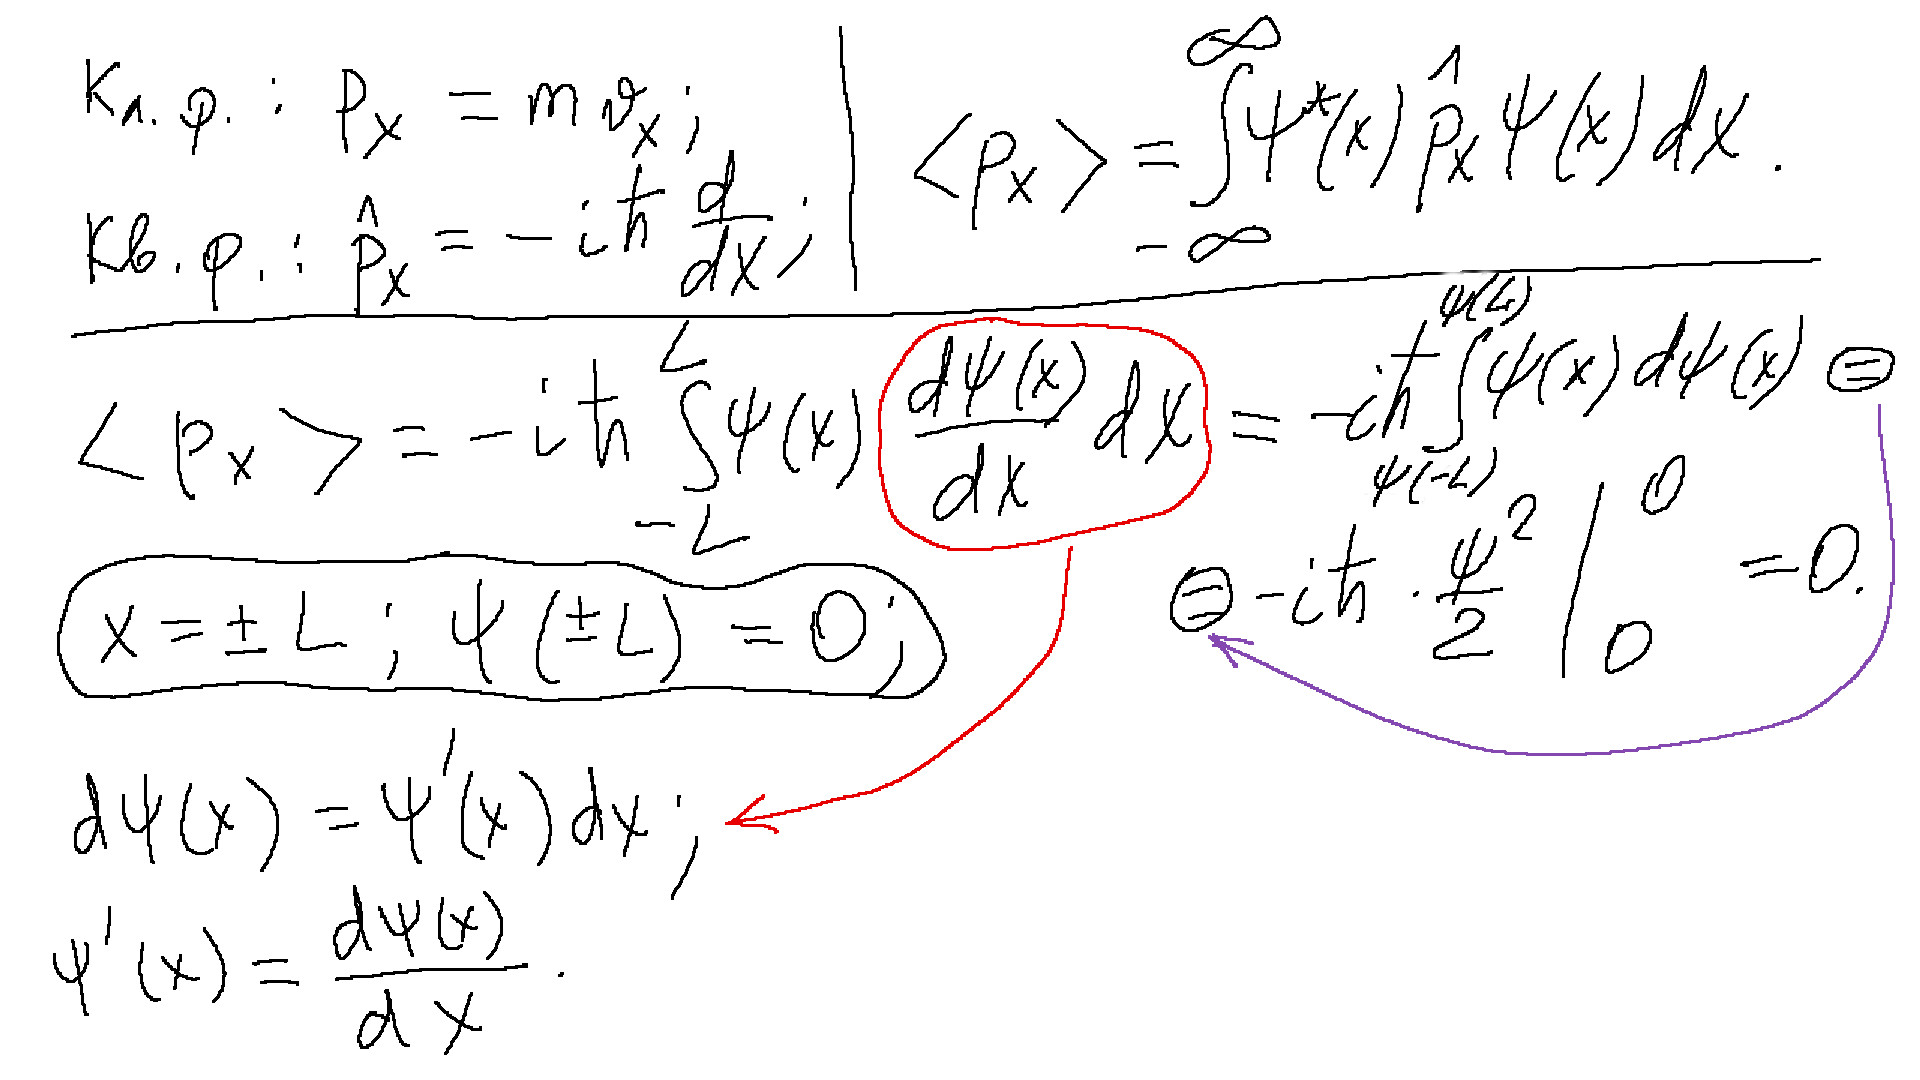 Кл. ф. : pₓ = m vₓ ;
Кв. ф. : p̂ₓ = − iħ d/dx ;
<pₓ> = ∫_{-∞}^{∞} ψ*(x) p̂ₓ ψ(x) dx .
<pₓ> = − iħ ∫_{-L}^{L} ψ(x) dψ(x)/dx dx = − iħ ∫_{ψ(-L)}^{ψ(L)} ψ(x) dψ(x) ⊜
⊜ − iħ · ψ²/2 |_{0}^{0} = 0.
x = ± L ; ψ (± L) = 0 ;
dψ(x) = ψ'(x) dx ;
ψ'(x) = dψ(x)/dx .